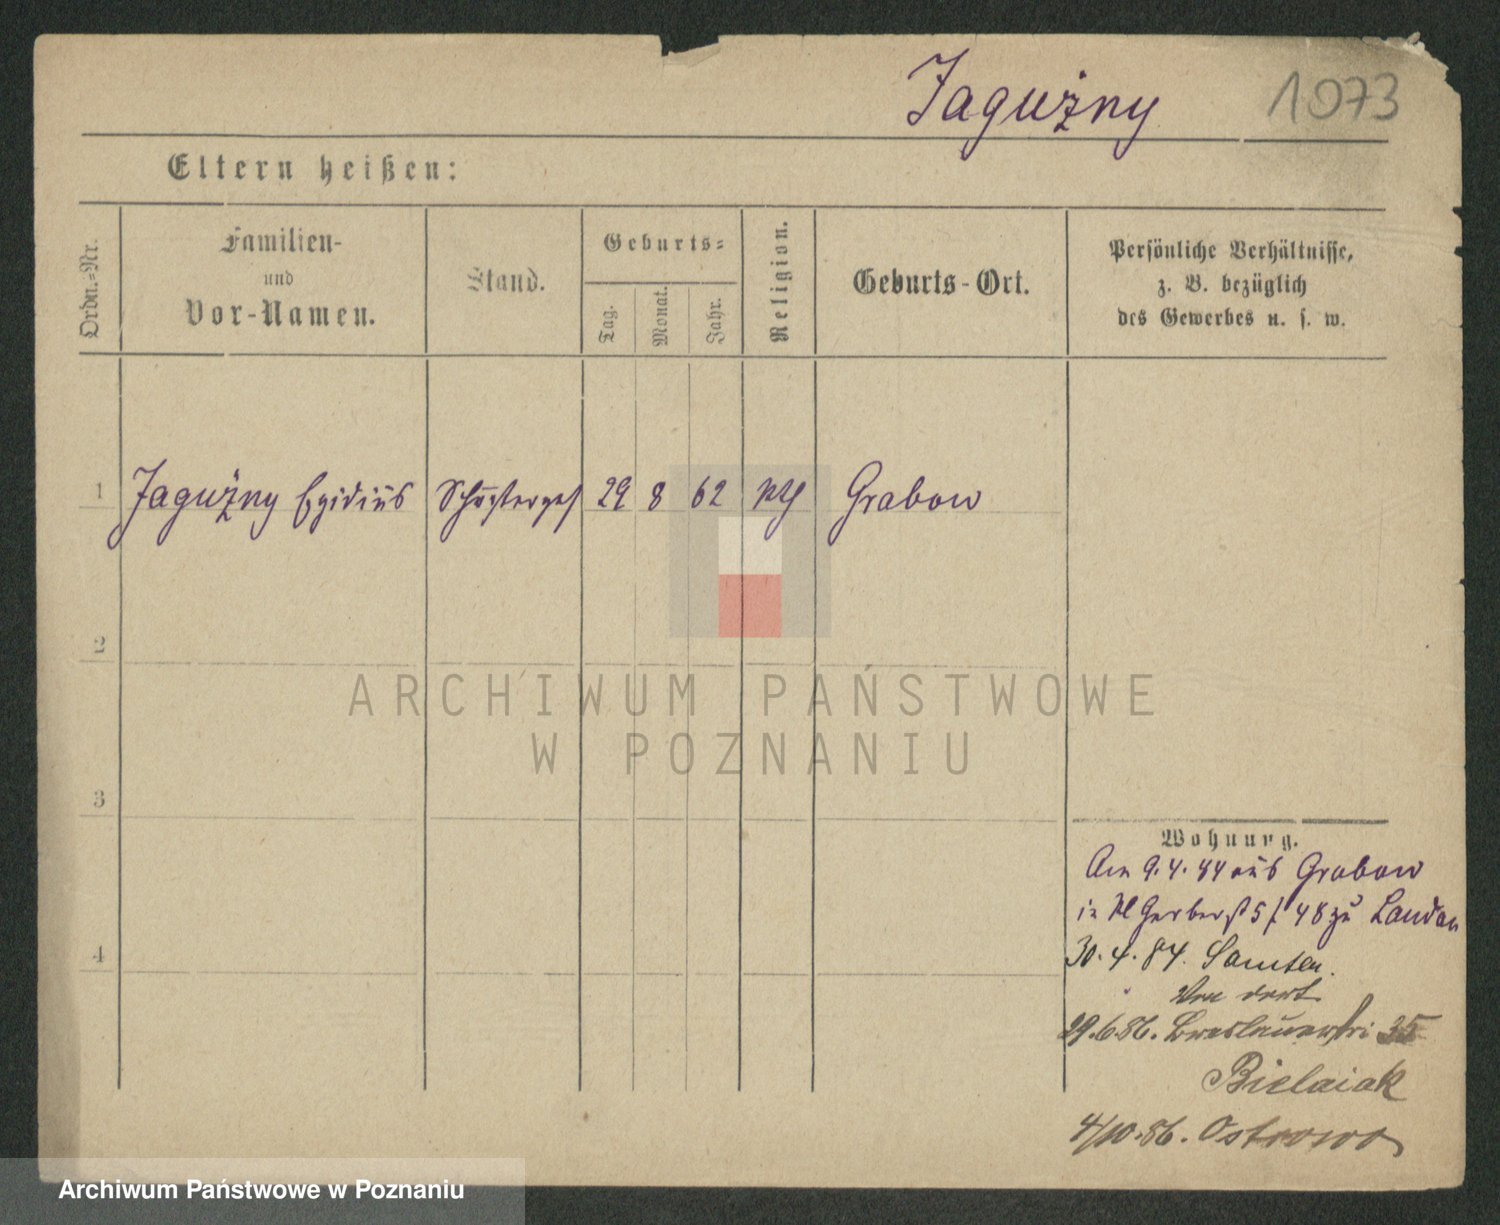 Jagużny 1073
Eltern heißen:
Ordn.=Nr.
Familien-
und
Vor-Namen.
Stand.
Geburts=
Tag.
Monat.
Jahr.
Religion.
Geburts-Ort.
Persönliche Verhältnisse,
z. B. bezüglich
des Gewerbes u. s. w.
1 Jagużny Egidius Schustergef 29 8 62 kth Grabow
2
3
4
Wohnung.
Am 9.4.84 aus Grabow
in Kl Gerberst 5 48 zu Landau
30.4.84.
Von dort
29.6.86. Breslauerstr 35
Bielaiak
4/10.86. Ostrowo
ARCHIWUM PAŃSTWOWE
W POZNANIU
Archiwum Państwowe w Poznaniu